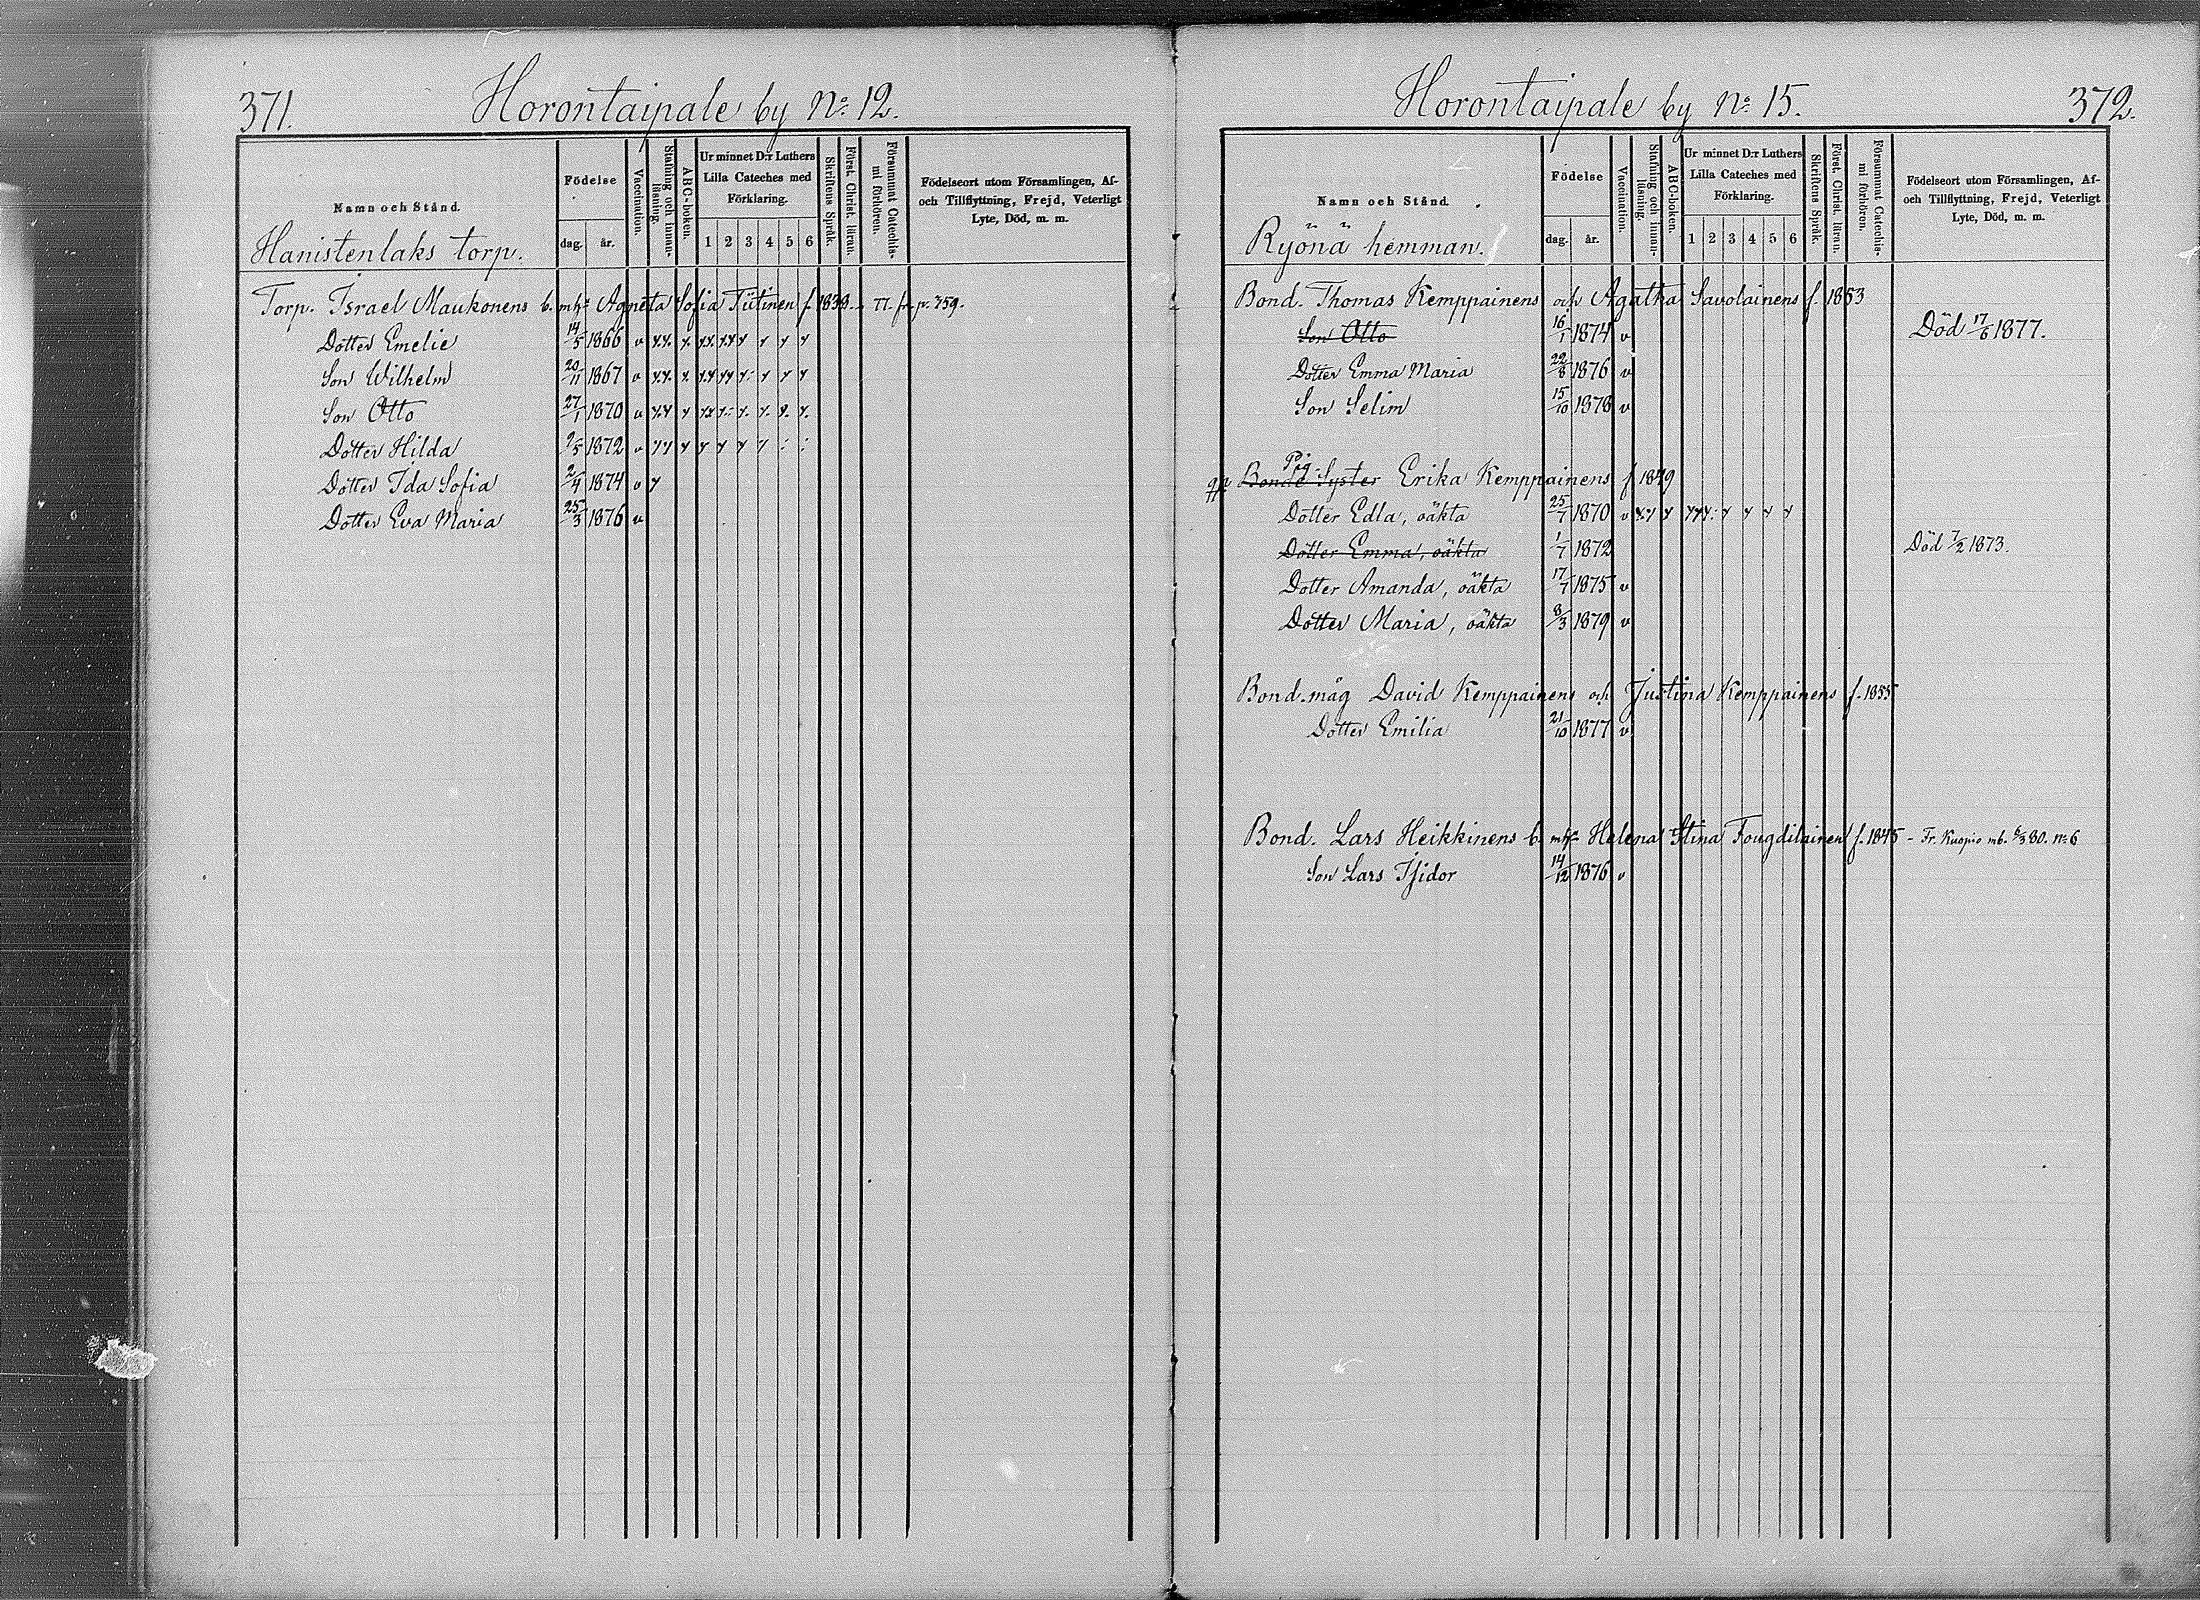 371. Horontaipale by No 12.
Namn och Stånd.
Födelse
dag. år.
Vaccination.
Stafning och innan-läsning.
ABC-boken.
Ur minnet D:r Luthers Lilla Cateches med Förklaring.
1 2 3 4 5 6
Skriftens Språk.
Först. Christ. läran.
Försummat Catechis-mi förhören.
Födelseort utom Församlingen, Af-
och Tillflyttning, Frejd, Veterligt
Lyte, Död, m. m.
Hanistenlaks torp.
Torp. Israel Maukonens b. m. h:s Agneta Sofia Tiitinen f. 1838 77. fr. p. 759.
Dotter Emelie 14/5 1866 v
Son Wilhelm 20/11 1867 v
Son Otto 27/1 1870 v
Dotter Hilda 2/5 1872 v
Dotter Ida Sofia 2/4 1874 v
Dotter Eva Maria 25/3 1876 v
Horontaipale by No 15. 372.
Namn och Stånd.
Födelse
dag. år.
Vaccination.
Stafning och innan-läsning.
ABC-boken.
Ur minnet D:r Luthers Lilla Cateches med Förklaring.
1 2 3 4 5 6
Skriftens Språk.
Först. Christ. läran.
Försummat Catechis-mi förhören.
Födelseort utom Församlingen, Af-
och Tillflyttning, Frejd, Veterligt
Lyte, Död, m. m.
Ryönä hemman.
Bond. Thomas Kemppainens och Agatha Savolainens f. 1853
Son Otto 16/1 1874 v Död 17/6 1877.
Dotter Emma Maria 22/8 1876 v
Son Selim 15/10 1878 v
Pig.
Bonde Syster Erika Kemppainens f 1849
Dotter Edla, oäkta 25/7 1870 v
Dotter Emma, oäkta 1/7 1872 Död 7/2 1873.
Dotter Amanda, oäkta 17/7 1875 v
Dotter Maria, oäkta 8/3 1879 v
Bond. måg David Kemppainens och Justina Kemppainens f. 1855
Dotter Emilia 21/10 1877 v
Bond. Lars Heikkinens b. m. h:s Helena Stina Fougdilainen f. 1845 - Fr. Kuopio mb. 6/3 80. No 6
Son Lars Isidor 14/12 1876 v